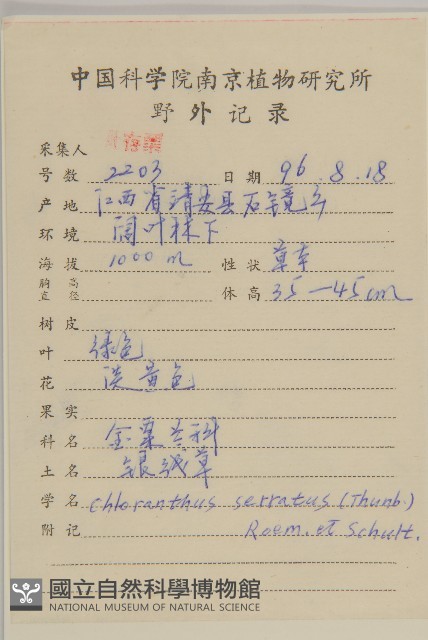 中国科学院南京植物研究所
野外记录
采集人
号数 2203 日期 96.8.18
产地 江西省靖安县石镜乡
环境 阔叶林下
海拔 1000 m 性状 草本
胸高直径 体高 35—45cm
树皮
叶 绿色
花 淡黄色
果实
科名 金粟兰科
土名 银线草
学名 Chloranthus serratus (Thunb.)
附记 Roem. et Schult.
國立自然科學博物館
NATIONAL MUSEUM OF NATURAL SCIENCE